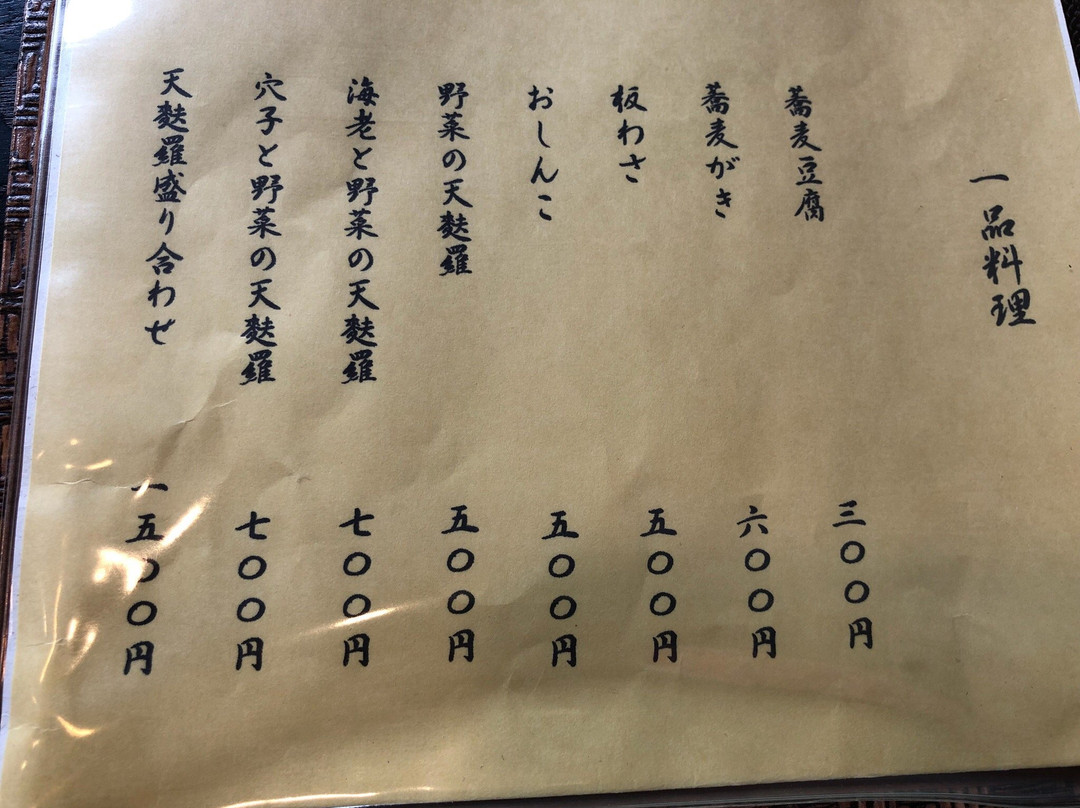 一品料理
蕎麦豆腐 三〇〇円
蕎麦がき 六〇〇円
板わさ 五〇〇円
おしんこ 五〇〇円
野菜の天麩羅 五〇〇円
海老と野菜の天麩羅 七〇〇円
穴子と野菜の天麩羅 七〇〇円
天麩羅盛り合わせ 一五〇〇円